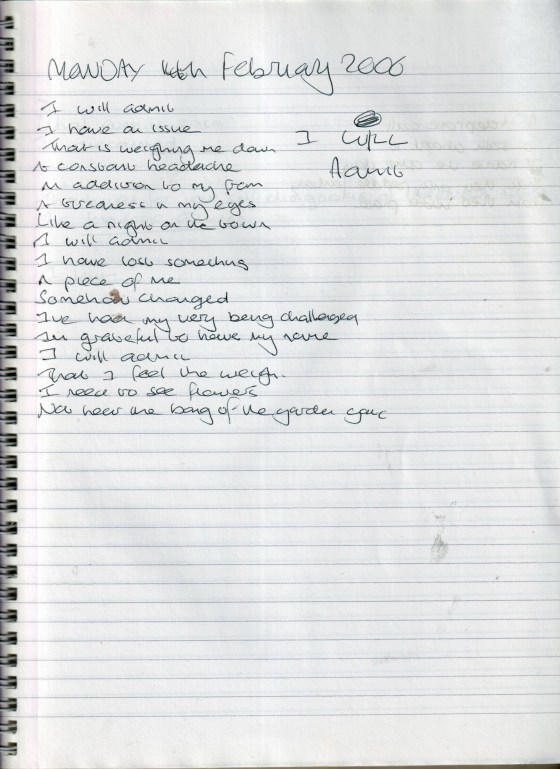 MONDAY 14th February 2006
I will admit
I have an issue
That is weighing me down
A constant headache
An addition to my
A tiredness in my eyes
Like a night on the town
I will admit
I have lost something
A piece of me
Somehow changed
I've had my very being challenged
I'm grateful to have my name
I will admit
That I feel the weight.
I need to see flowers
Not hear the bang of the garden gate
I WILL
Admit